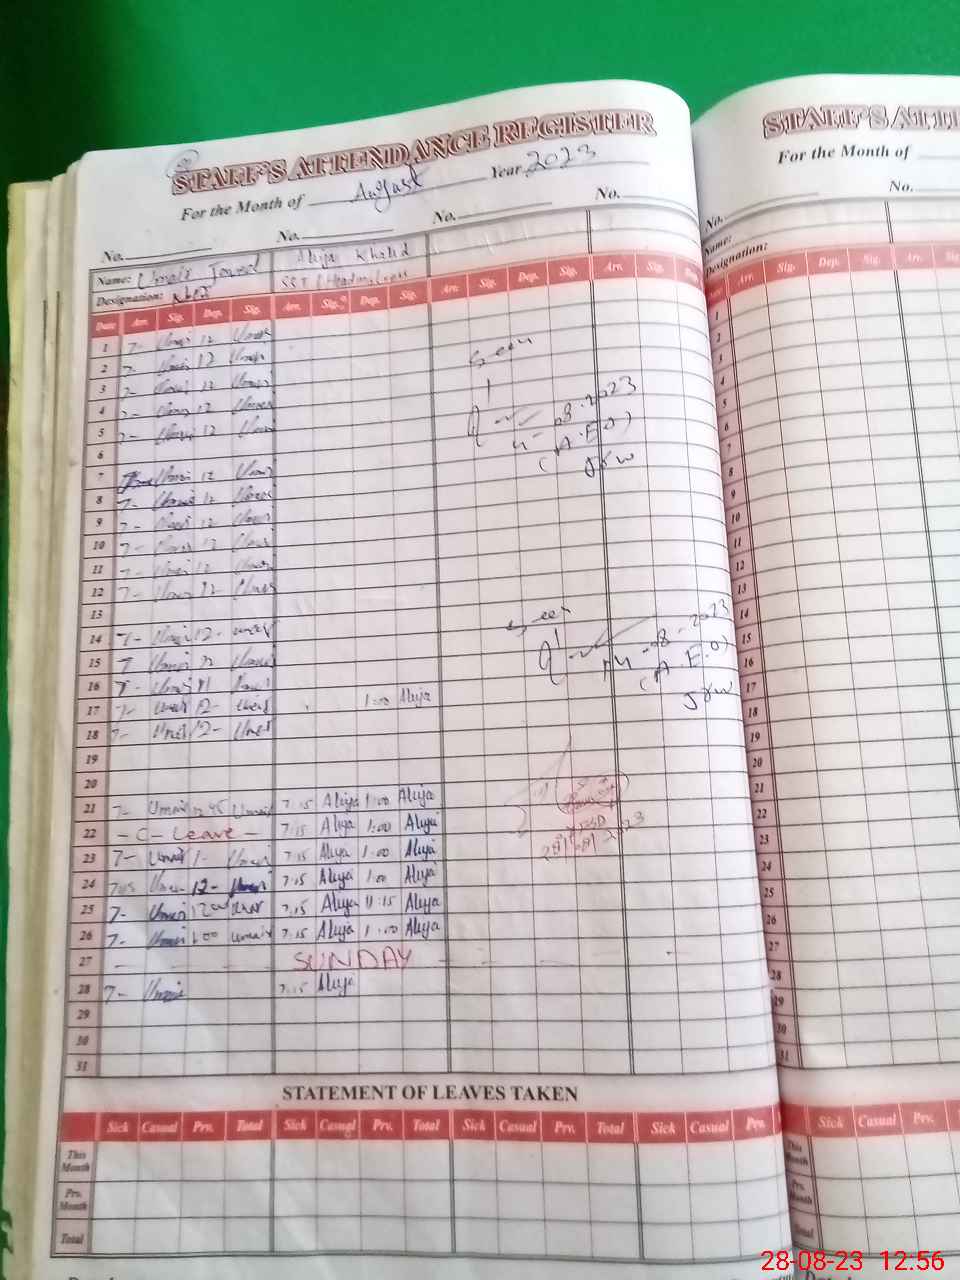 STAFF'S ATTENDANCE REGISTER
For the Month of August Year 2023
No. No. No. No.
Name: Umair Javed Aliya Khalid
Designation: SST (Headmistress
Date Arr. Sig. Dep. Sig. Arr. Sig. Dep. Sig. Arr. Sig. Dep. Sig. Arr. Sig. Dep.
1 7- Umair 12 Umair
2 7- Umair 12 Umair
3 7- Umair 12 Umair
4 7- Umair 12 Umair
5 7- Umair 12 Umair
6
7 Umair 12 Umair
8 7- Umair 12 Umair
9 7- Umair 12 Umair
10 7- Umair 12 Umair
11 7- Umair 12 Umair
12 7- Umair 12 Umair
13
14 7- Umair 12- Umair
15 7 Umair 12 Umair
16 7- Umair Umair
17 7- Umair 12- Umair 1:00 Aliya
18 7- Umair 12- Umair
19
20
21 7- Umair 12:45 Umair 7:15 Aliya 1:00 Aliya
22 - C - Leave - 7:15 Aliya 1:00 Aliya
23 7- Umair 1- Umair 7:15 Aliya 1:00 Aliya
24 Umair 12- Umair 7:15 Aliya 1:00 Aliya
25 7- Umair Umair 7:15 Aliya 11:15 Aliya
26 7- Umair 1:00 Umair 7:15 Aliya 1:00 Aliya
27 SUNDAY
28 7- Umair 7:15 Aliya
29
30
31
Seen
08.2023
(A.E.O)
Seen
08-2023
(A.E.O)
28/08/2023
STATEMENT OF LEAVES TAKEN
Sick Casual Prv. Total Sick Casual Prv. Total Sick Casual Prv. Total Sick Casual Prv.
This Month
Prv. Month
Total
STAFF'S ATTE
For the Month of
No. No.
Name:
Designation:
Arr. Sig. Dep. Sig. Arr. Sig.
1
2
3
4
5
6
7
8
9
10
11
12
13
14
15
16
17
18
19
20
21
22
23
24
25
26
27
28
29
30
31
Sick Casual Prv.
This Month
Prv. Month
Total
28-08-23 12:56